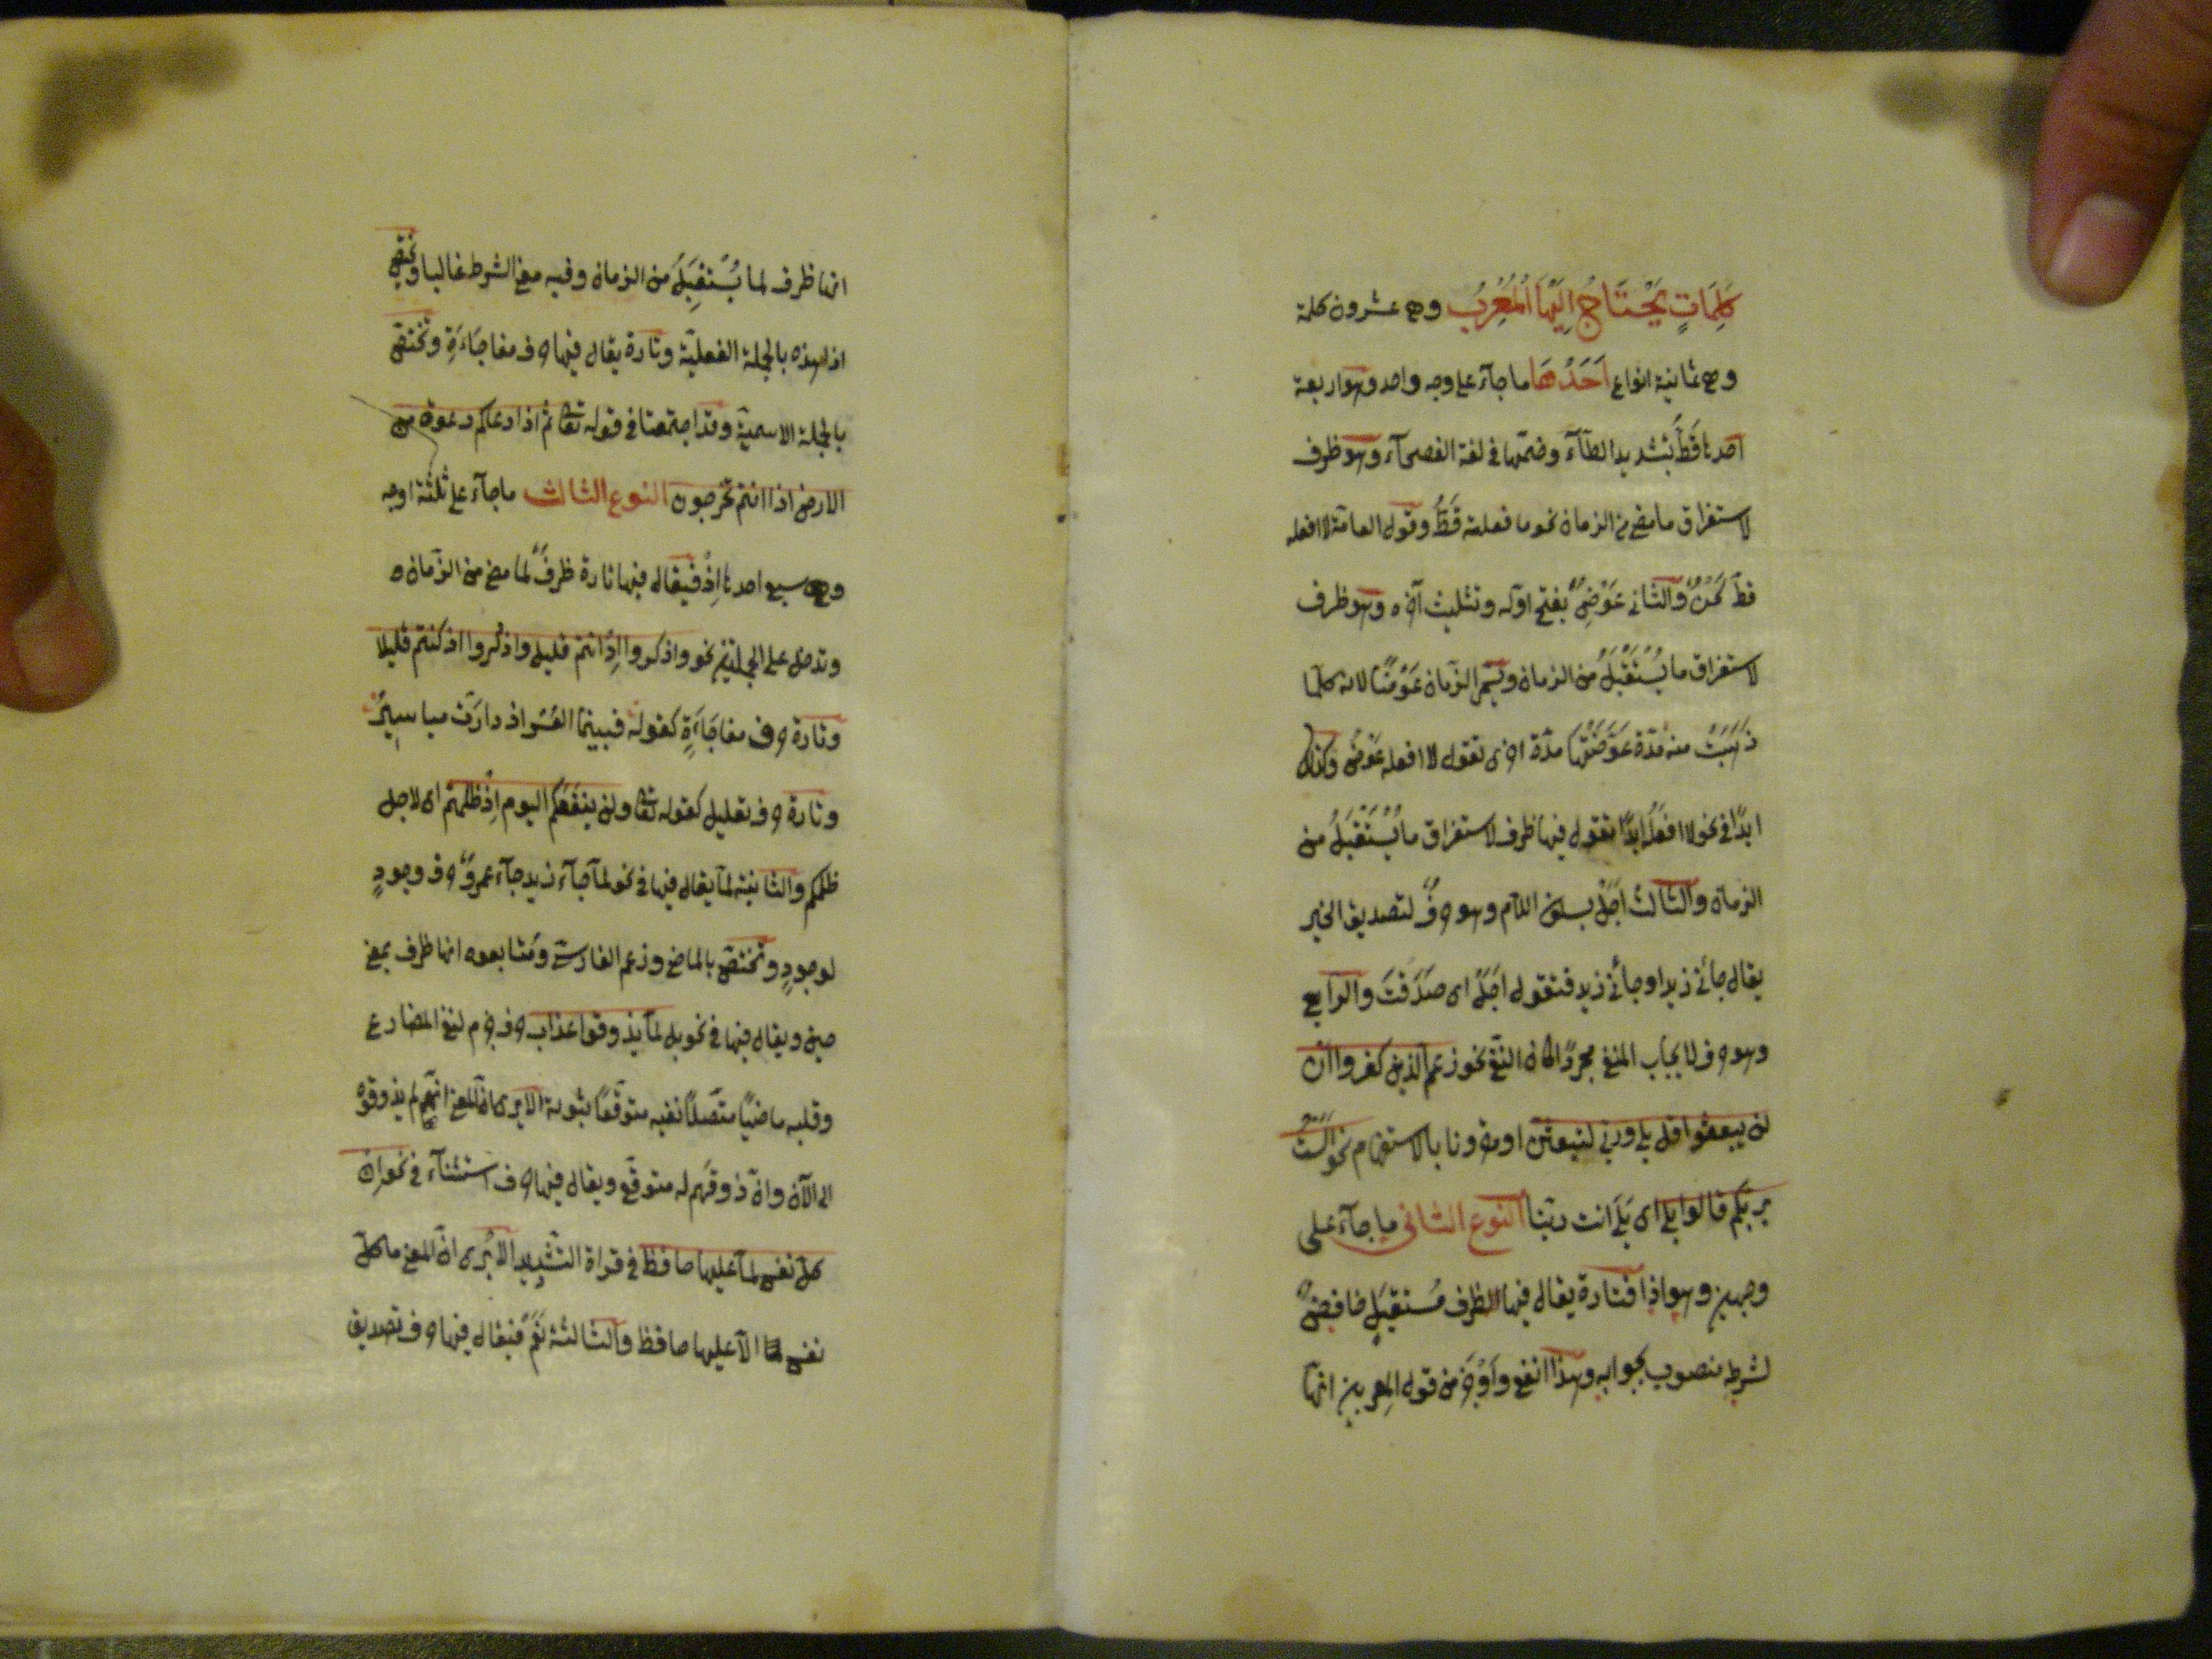 كَلِمَاتٍ يَحْتَاجُ اِلَيْهَا اَلْمُعْرِبُ وهى عشرون كلمة
وهى ثمانية انواع اَحَدُهَا ما جآء على وجه واحد وهو اربعة
احدها قَطُّ بتشديد الطآء وضمّها فى لغة الفصحآء وهو ظرف
لاستغراق ما مضى من الزمان نحو ما فعلته قَطُّ وقول العامّة لا افعله
قطّ لحن والثانى عَوْضُ بفتح اوّله وتثليث آخره وهو ظرف
لاستغراق ما يُسْتَقْبَلُ من الزمان ويسمّى الزّمان عَوْضًا لانه كلّما
ذَهَبَتْ منه مُدّة عَوَّضَتْهَا مدّة اخرى تقول لا افعله عَوْضُ وكذلك
ابدًا فى نحو لا افعلُه ابدًا تقول فيها ظرف لاستغراق ما يُسْتَقْبَلُ من
الزمان والثالث اَجَلْ بسكون اللآم وهو حرفٌ لتصديق الخبر
يقال جآئنى زيد او ما جآئنى زيد فتقول اَجَلْ اى صَدَقْتَ والرابع
وهو حرف لايجاب المنفى مجردًا كان النّفى نحو زعم الذين كفروا ان
لن يبعثوا قل بلى وربى لتبعثنّ او مقرونا بالاستفهام نحو اَلَسْتُ
بربّكم قالوا بلى اى بَلَى انت ربّنا النوع الثانى ما جآء على
وجهين وهو اذا فتارة يقال فيها ظرف مُستقبَلٍ خافضٌ
لشرطه منصوب بجوابه وهذا انفع واَوْجَز من قول المعربين انّها
انها ظرف لما يُسْتَقبَلُ من الزمان وفيه معنى الشرط غالبا وتختصّ
اذا هذه بالجملة الفعليّة وتارة يقال فيها حرف مفاجَاءَةِ وتختصّ
بالجملة الاسميّة وقد اجتمعتا فى قوله تعا ثم اذا دعاكم دعوة من
الارض اذا انتم تخرجون النوع الثالث ما جآء على ثلثة اوجه
وهى سبع احدها اِذْ فَيقال فيها تارة ظرفٌ لما مضى من الزّمان
وتدخل على الجملتين نحو واذكروا اِذْ انتم قليل واذكروا اذ كنتم قليلا
وتارة حرف مفاجَاءَةٍ كقوله فبينما العُسْر اذ دارَت مياسيرُ
وتارة حرف تعليل كقوله تعا ولن ينفعَكم اليوم اِذْ ظلمتم اى لاجل
ظلمكم والثانية لمّا يقال فيها فى نحو لمّا جآء زيد جآء عمروٌ حرف وجودٍ
لوجودٍ وتختصّ بالماضى وزعم الفارسى ومتابعوه انها ظرف بمعنى
حين ويقال فيها فى نحو بل لمّا يذوقوا عذاب حرف جزم لنفى المضارع
وقلبه ماضيًا متّصلًا نفيه متوقّعًا ثبوته الا يرى انّ المعنى انهم لم يذوقوه
الى الآن وانّ ذوقهم له متوقّع ويقال فيها حرف استثنآء فى نحو ان
كلّ نفس لمّا عليها حافظ فى قراة التّشديد الا يُرى انّ المعنى ما كلّ
نفس الّا عليها حافظ والثالثة نَعَمْ فيقال فيها حرف تصديق